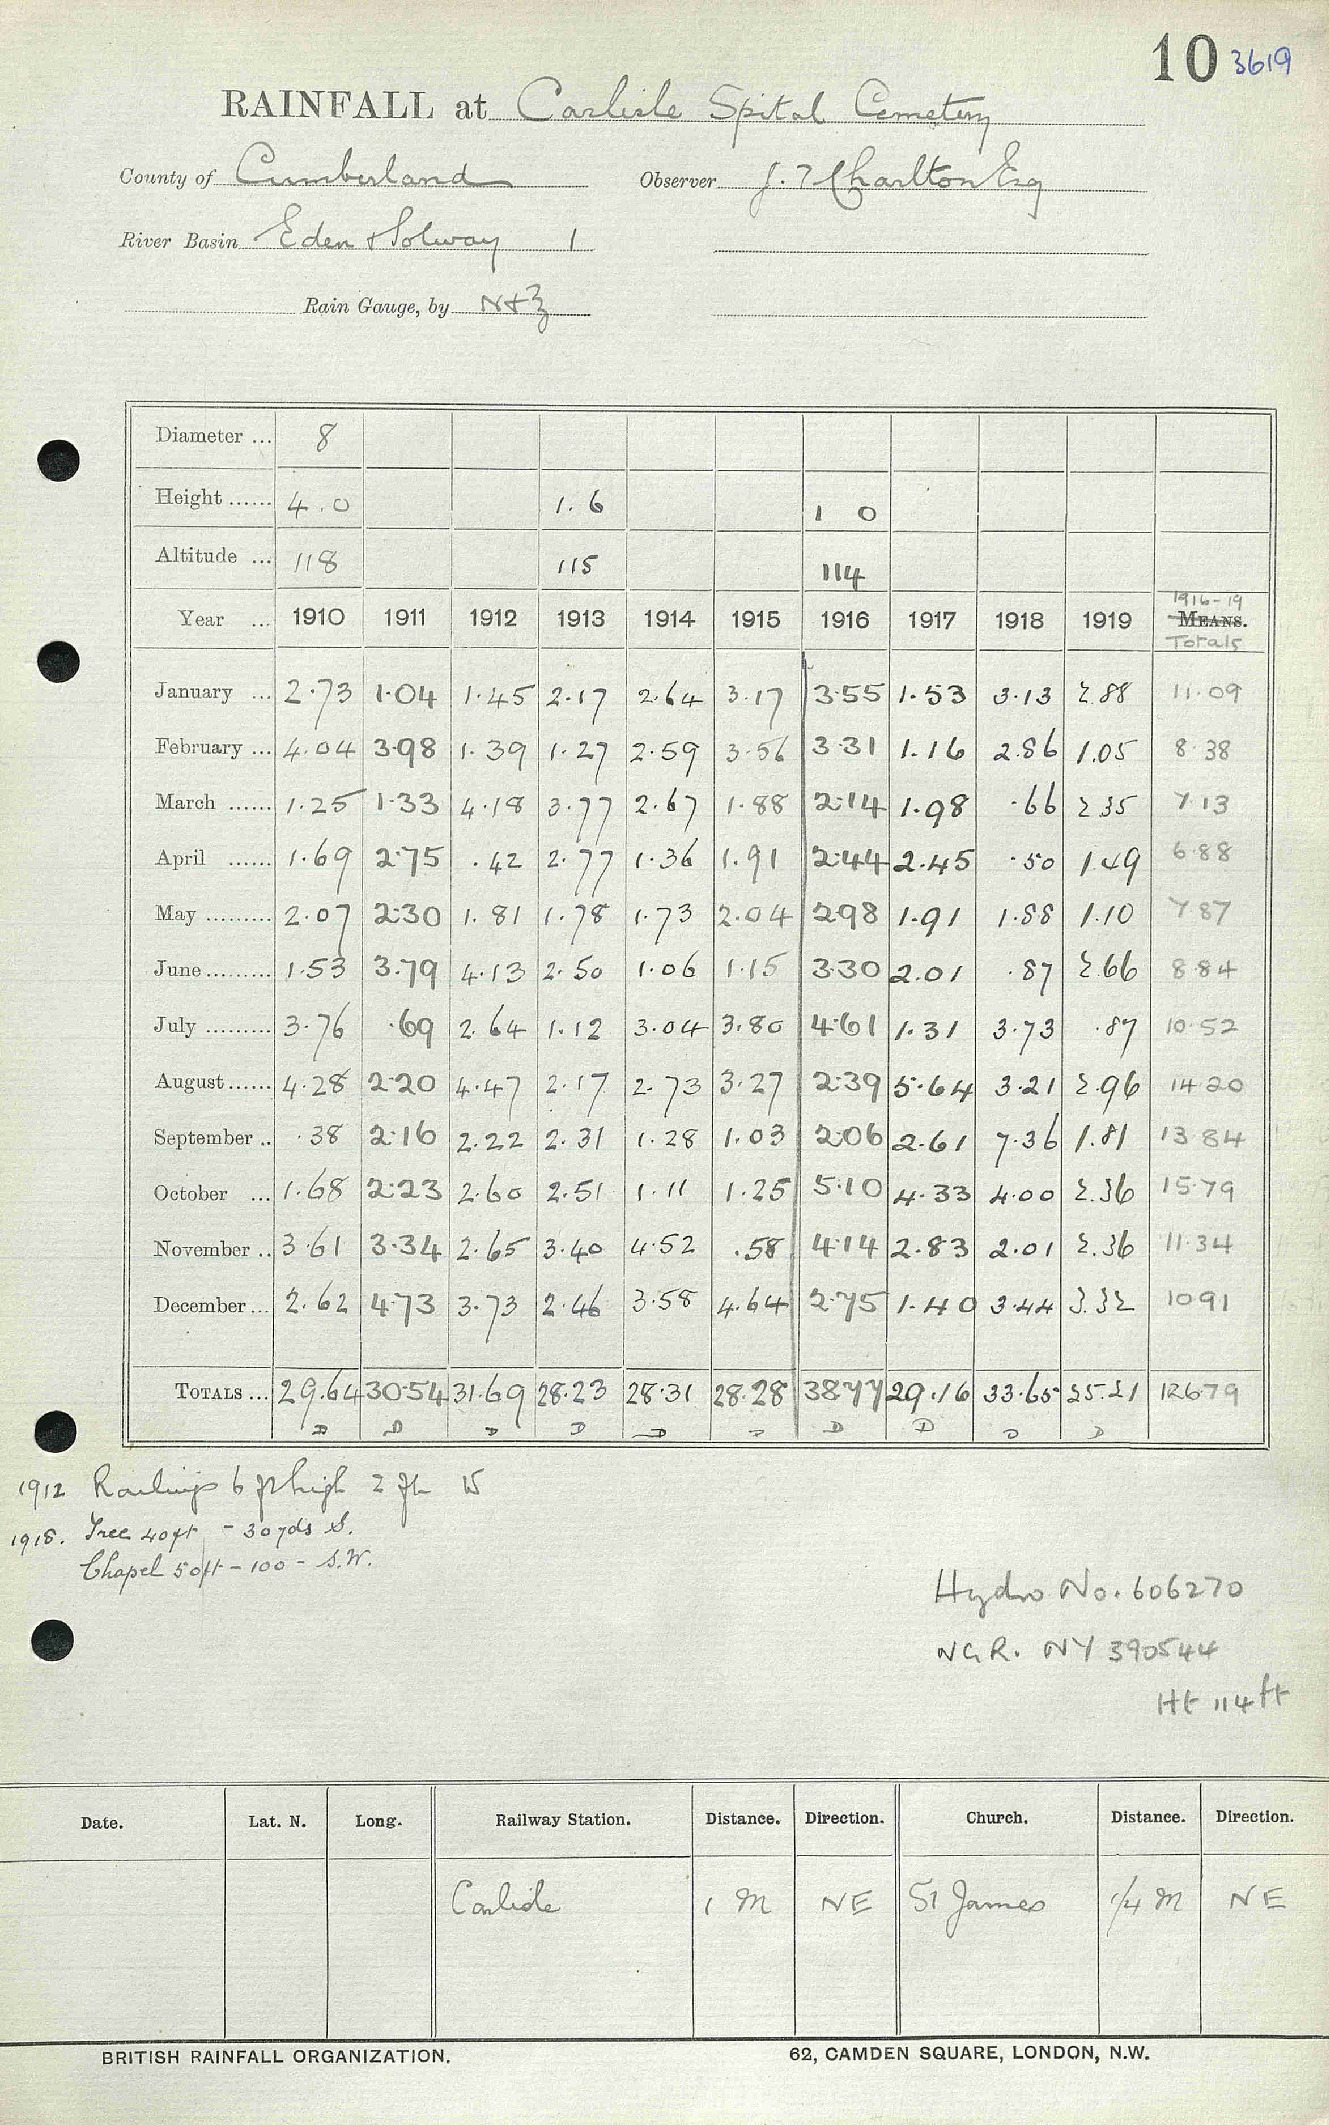 10 3619
RAINFALL at Carlisle Spital Cemetery
County of Cumberland Observer J. T Charlton Esq
River Basin Eden & Solway 1
Rain Gauge, by N+Z
Diameter ... 8
Height ...... 4.0 1.6 1 0
Altitude ... 118 115 114
Year ... 1910 1911 1912 1913 1914 1915 1916 1917 1918 1919 1916-19 MEANS. Totals
January ... 2.73 1.04 1.45 2.17 2.64 3.17 3.55 1.53 3.13 2.88 11.09
February ... 4.04 3.98 1.39 1.27 2.59 3.56 3.31 1.16 2.86 1.05 8.38
March ...... 1.25 1.33 4.18 3.77 2.67 1.88 2.14 1.98 .66 2.35 7.13
April ...... 1.69 2.75 .42 2.77 1.36 1.91 2.44 2.45 .50 1.49 6.88
May ......... 2.07 2.30 1.81 1.78 1.73 2.04 2.98 1.91 1.88 1.10 7.87
June ......... 1.53 3.79 4.13 2.50 1.06 1.15 3.30 2.01 .87 2.66 8.84
July ......... 3.76 .69 2.64 1.12 3.04 3.80 4.61 1.31 3.73 .87 10.52
August ...... 4.28 2.20 4.47 2.17 2.73 3.27 2.39 5.64 3.21 2.96 14.20
September .. .38 2.16 2.22 2.31 1.28 1.03 2.06 2.61 7.36 1.81 13.84
October ... 1.68 2.23 2.60 2.51 1.11 1.25 5.10 4.33 4.00 2.36 15.79
November .. 3.61 3.34 2.65 3.40 4.52 .58 4.14 2.83 2.01 2.36 11.34
December ... 2.62 4.73 3.73 2.46 3.58 4.64 2.75 1.40 3.44 3.32 10.91
TOTALS ... 29.64 30.54 31.69 28.23 28.31 28.28 38.77 29.16 33.65 25.21 126.79
D D D D D D D D D D
1912 Railings 6 ft high 2 ft W
1918. Tree 40ft - 30yds S.
Chapel 50ft - 100 - S.W.
Hydro No. 606270
NGR. NY 390544
Ht 114ft
Date. Lat. N. Long. Railway Station. Distance. Direction. Church. Distance. Direction.
Carlisle 1 M NE St James 1/4 M NE
BRITISH RAINFALL ORGANIZATION. 62, CAMDEN SQUARE, LONDON, N.W.